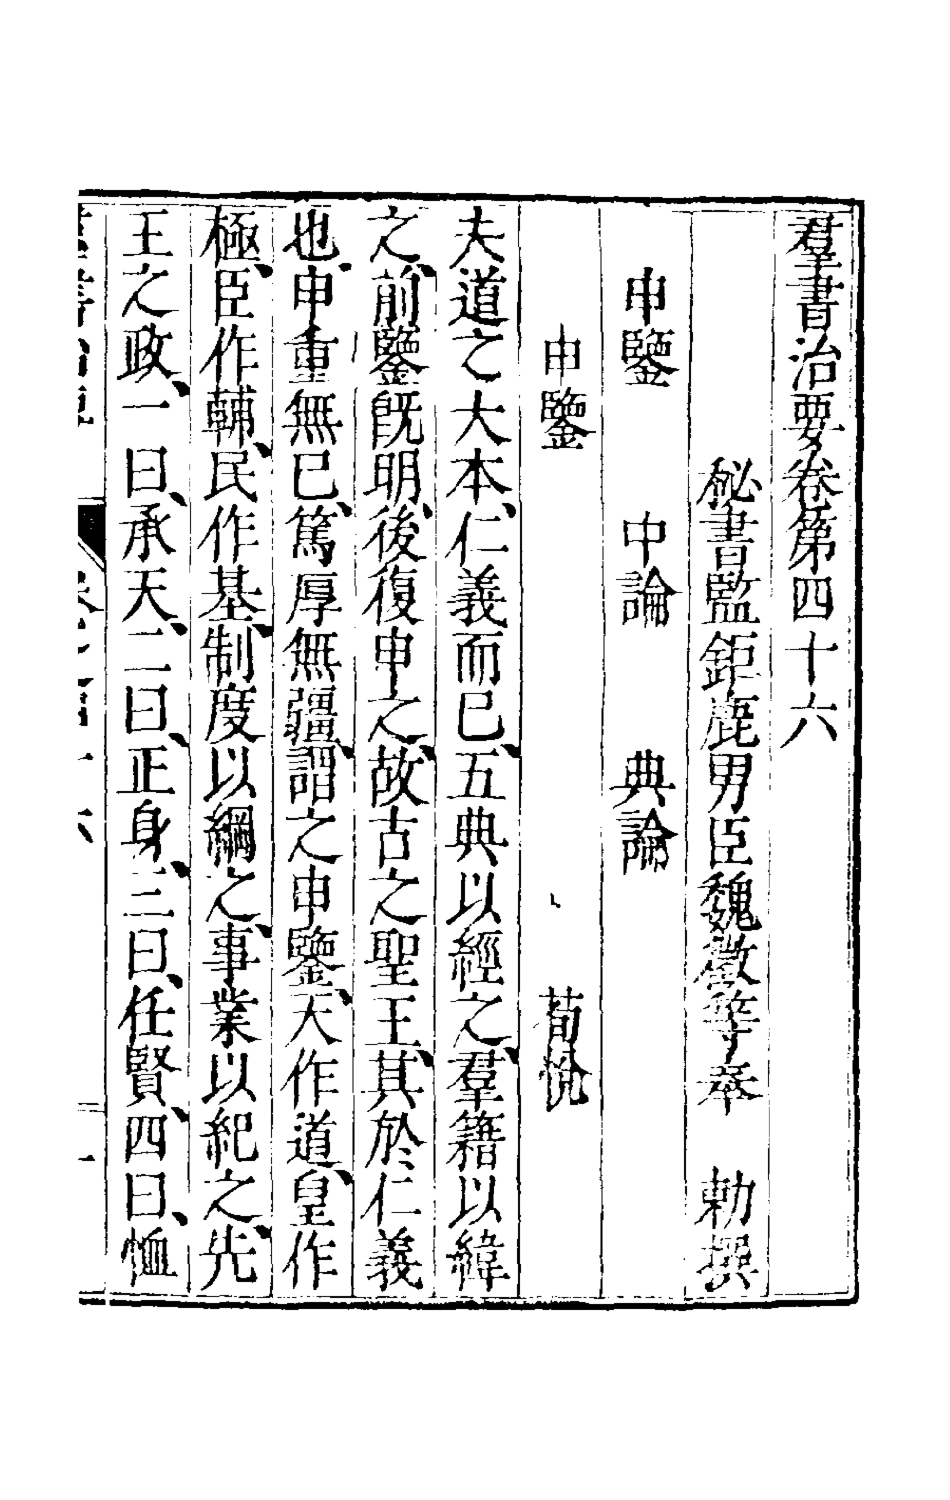 羣書治要卷第四十六
秘書監鉅鹿男臣魏徵等奉 勅撰
申鑒 中論 典論
申鑒 荀悅
夫道之大本、仁義而已、五典以經之、羣籍以緯
之、前鑒旣明、後復申之、故古之聖王、其於仁義
也、申重無已、篤厚無疆、謂之申鑒、天作道、皇作
極、臣作輔、民作基、制度以綱之、事業以紀之、先
王之政、一曰、承天、二曰、正身、三曰、任賢、四曰、恤